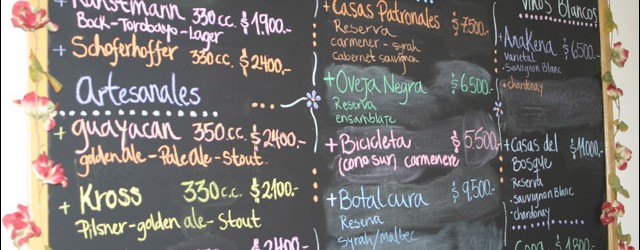 + Kunstmann 330cc. $1.900.-
Bock-Torobayo-Lager
+ Schoferhoffer 330cc. $2400.-
Artesanales
+ guayacan 350cc. $2400.-
golden ale-Pale ale-Stout.
+ Kross 330c.c. $2.100.-
Pilsner-golden ale-Stout
$2400.-
+ Casas Patronales $7.500.-
Reserva
carmener-syrah
Cabernet sauvignon
+ Oveja Negra $6.500.-
Reserva
ensamblaje
+ Bicicleta $5.500.-
(cono sur) carmenere
+ Botalcura $9.500.-
Reserva
Syrah/malbec
Vinos Blancos
+ Anakena $6500.-
varietal
-Sauvignon Blanc
-chardonay
+ Casas del $11.000.-
Bosque
Reserva
-sauvignon Blanc
-chardonay